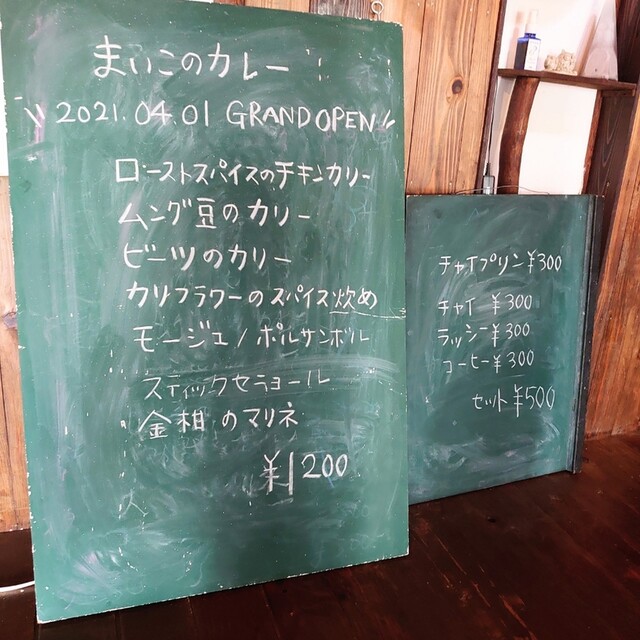 まいこのカレー
2021.04.01 GRAND OPEN
ローストスパイスのチキンカリー
ムング豆のカリー
ビーツのカリー
カリフラワーのスパイス炒め
モージュ / ポルサンボル
スティックセニョール
金柑のマリネ
¥1200
チャイプリン ¥300
チャイ ¥300
ラッシー ¥300
コーヒー ¥300
セット ¥500